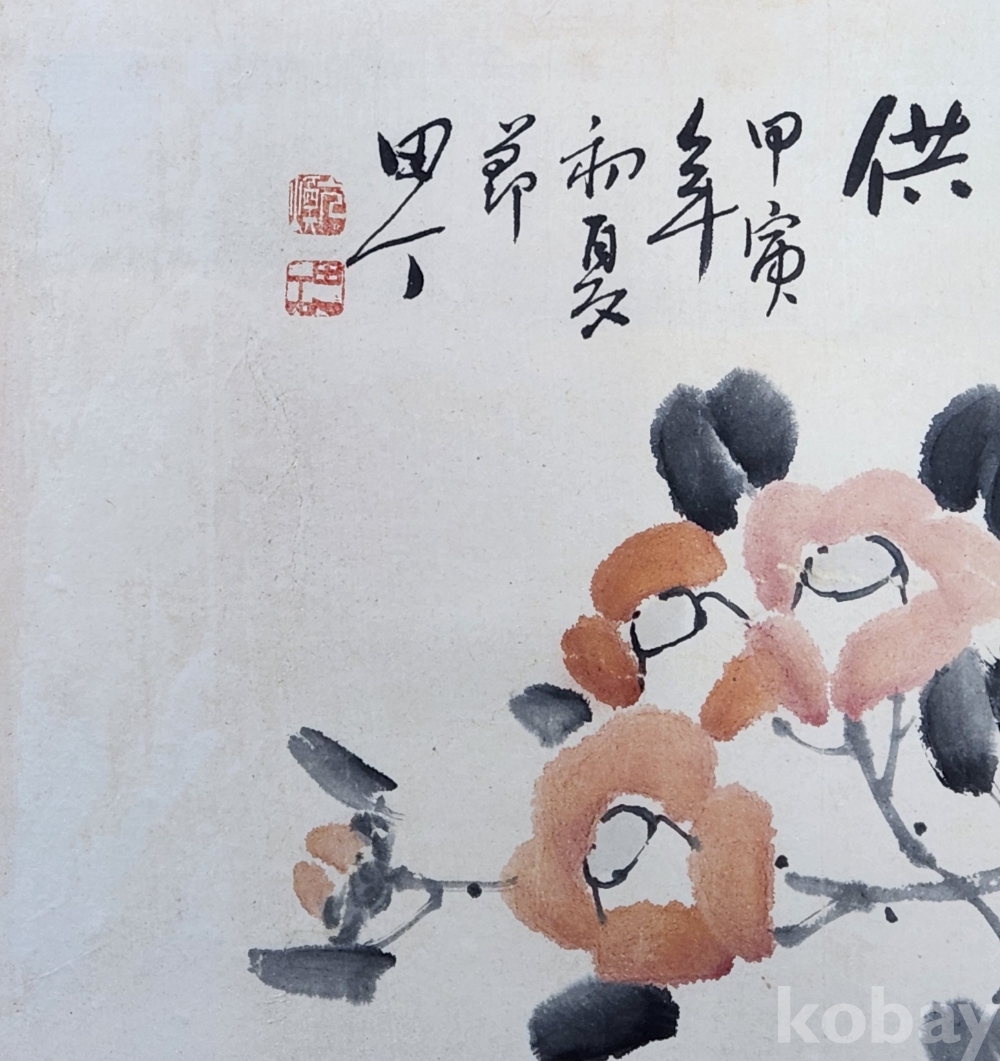 供
甲寅
年
初夏
節
田丁
kobay